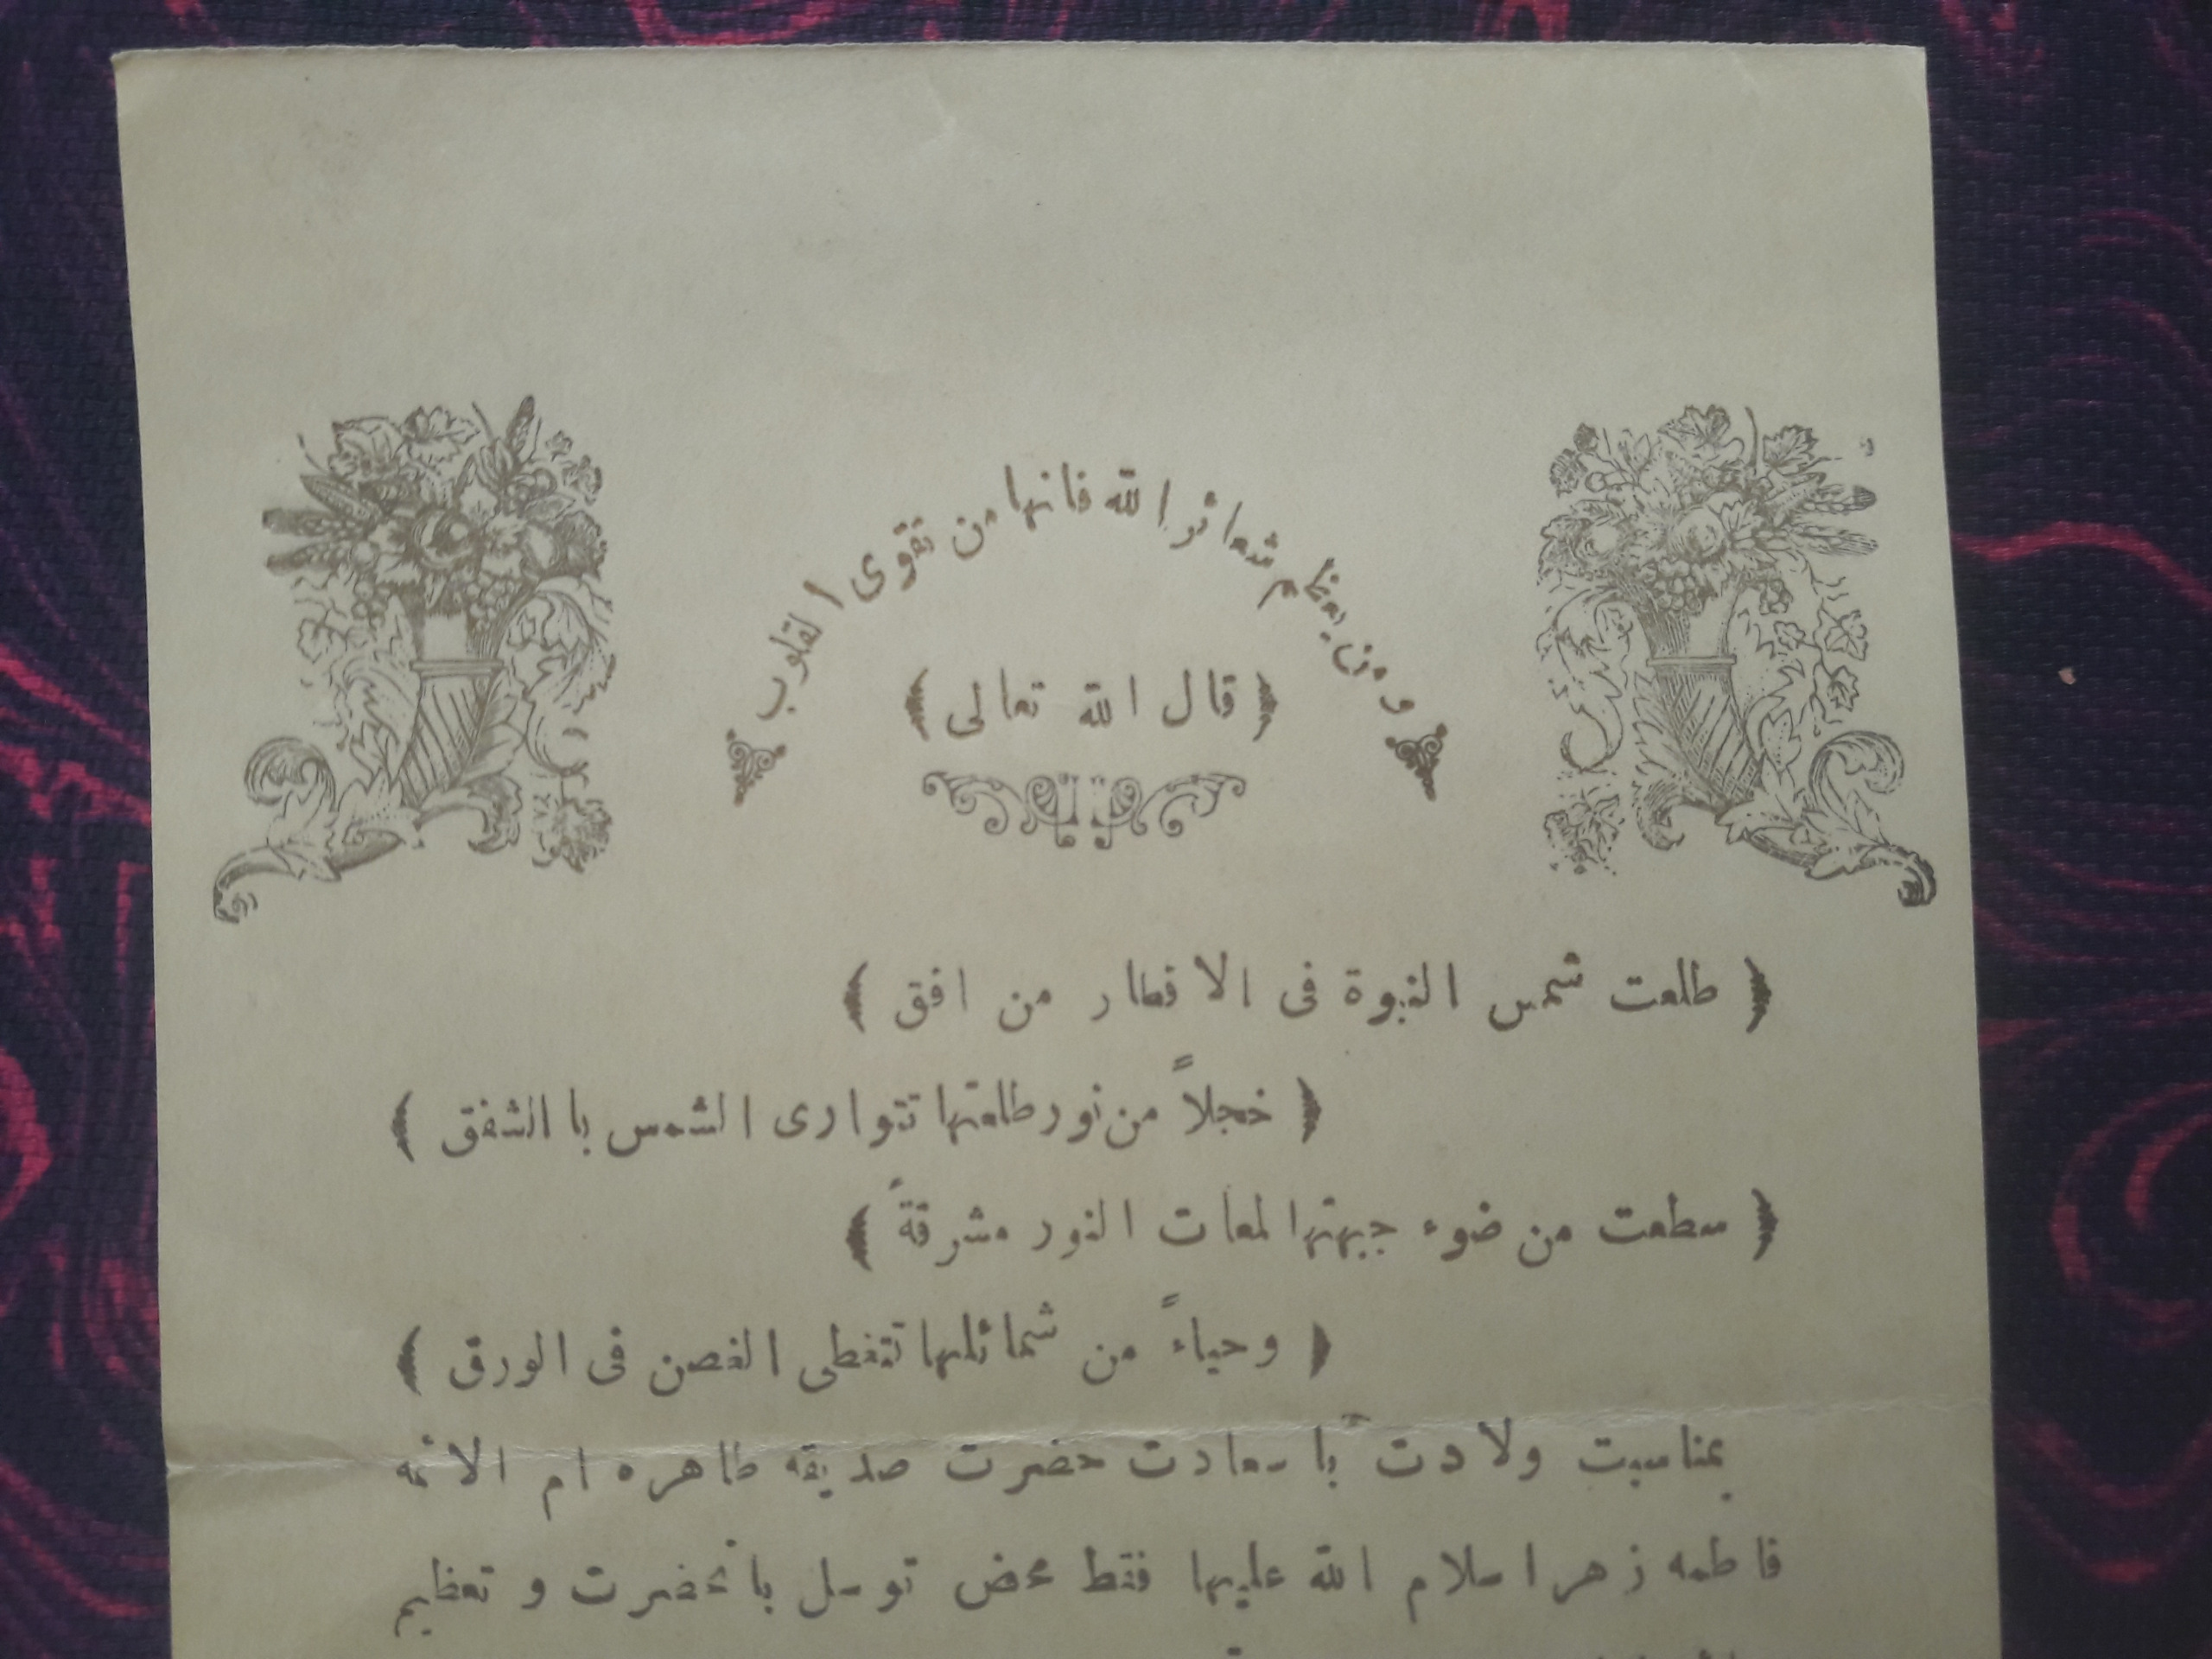 و من يعظم شعائر الله فانها من تقوى القلوب
﴿ قال الله تعالى ﴾
﴿ طلعت شمس النبوة فى الاقطار من افق ﴾
﴿ خجلاً من نور طلعتها تتوارى الشمس با الشفق ﴾
﴿ سطعت من ضوء جبهتها لمعات النور مشرقةً ﴾
﴿ وحياءً من شمائلها تتغطى الغصن فى الورق ﴾
بمناسبت ولادت با سعادت حضرت صديقه طاهره ام الائمه
فاطمه زهرا سلام الله عليها فقط محض توسل بآنحضرت و تعظيم